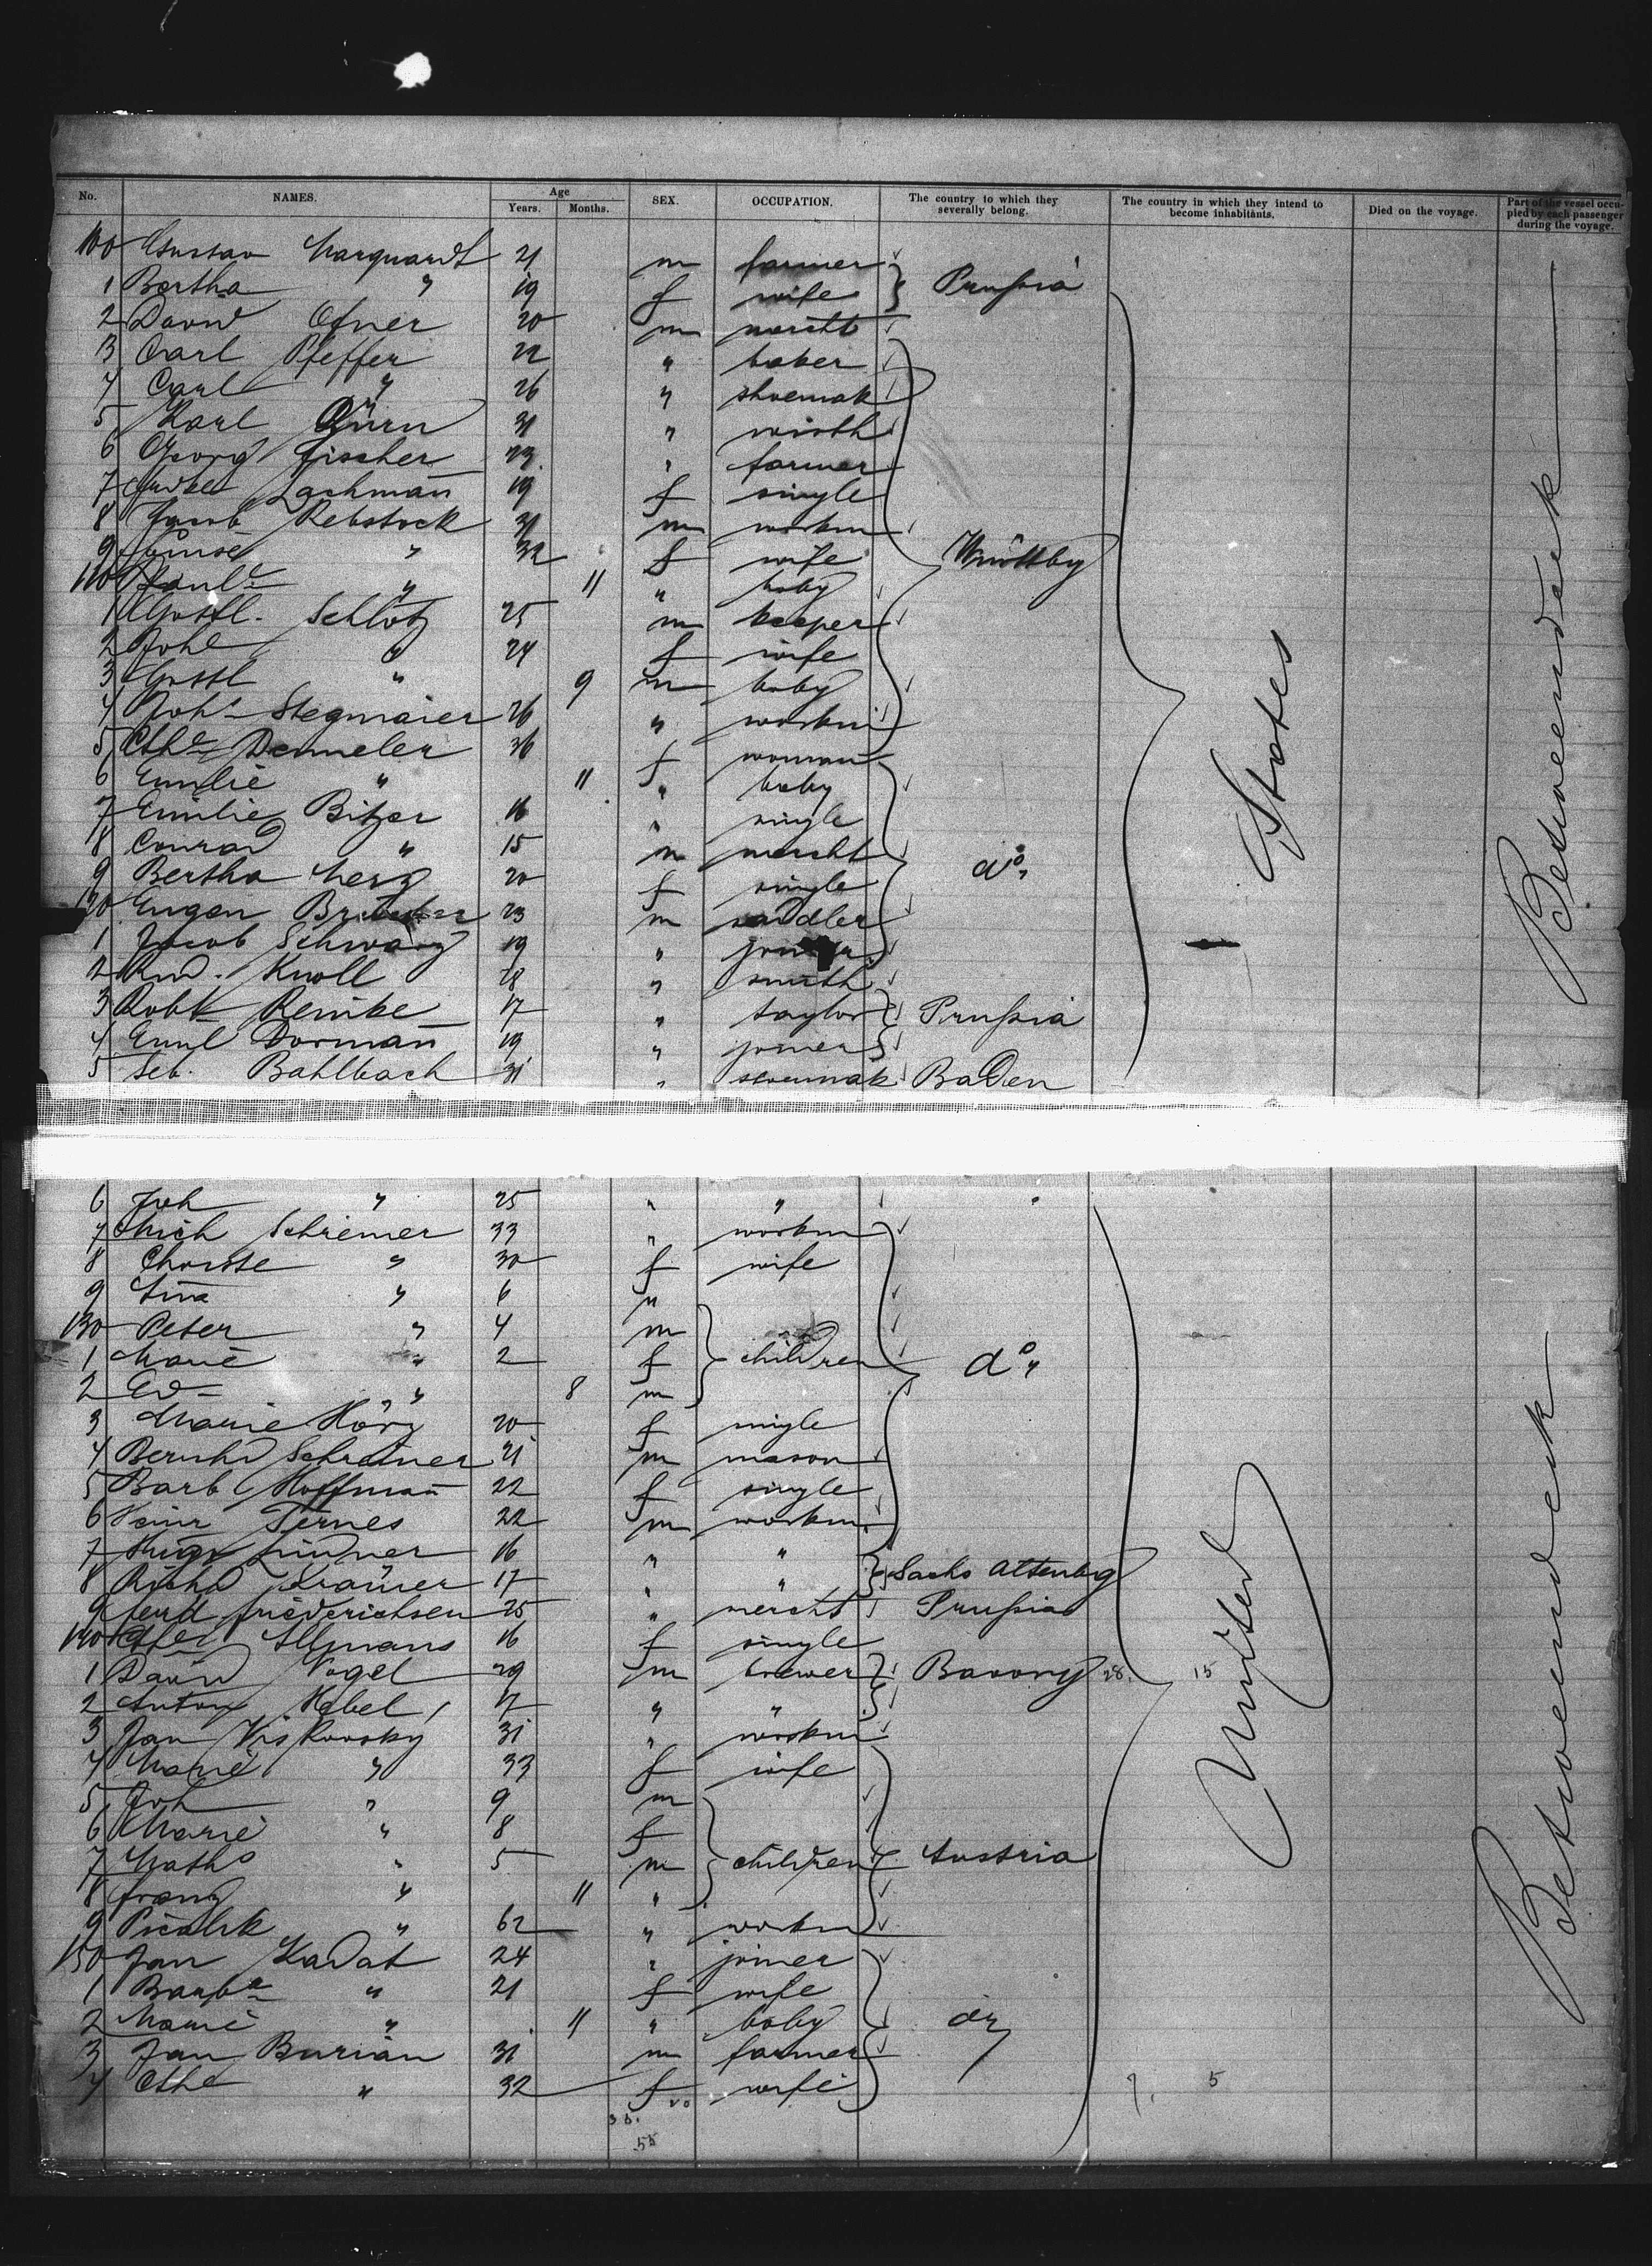 No. NAMES. Age Years. Months. SEX. OCCUPATION. The country to which they severally belong. The country in which they intend to become inhabitants. Died on the voyage. Part of the vessel occupied by each passenger during the voyage.
100 Gustav Marquardt 21 m farmer Prussia
1 Bertha " 19 f wife
2 David Ofner 20 m mercht
3 Carl Pfeffer 22 " baker
4 Carl " 26 " shoemak
5 Karl 31 "
6 Georg Fischer 23 " farmer
7 Lachman̄ 19 f single
8 Jacob Rebstock 31 m workm
9 Louise " 32 f wife Württbg
110 Paule " 11 " baby
1 Gottl. Schlotz 25 m
2 Johe " 24 f wife
3 Gottl " 9 m baby
4 Johs Stegmaier 26 " workm
5 Cthe Denneler 36 f woman
6 Emilie " 11 " baby
7 Emilie Bitzer 16 " single
8 Conrad " 15 m mercht do,
9 Bertha Merz 20 f single
120 Eugen 23 m saddler
1 Jacob Schwarz 19 " joiner
2 Knoll 28 " smith
3 Robt Reinke 17 " taylor Prussia
4 Emil Dorman̄ 19 " joiner
5 Seb. Bahlbach 31 " shoemak Baden
States
Betweendeck
6 Joh " 25 " " "
7 Mich Schriemer 33 " workm
8 " 30 f wife
9 Lina " 6 "
130 Peter " 4 m
1 Marie " 2 f children do "
2 Ed " 8 m
3 Marie 20 f single
4 Bernhd Schreiner 21 m mason
5 Barb Hoffman̄ 22 f single
6 Heinr Ternes 22 m workm
7 Hugo Lindner 16 " "
8 Richd Kramer 17 " " Sachs Altenbg
9 Ferd Friederichsen 25 " mercht Prussia
140 16 f single
1 David Vogel 29 m brewer Bavory 28. 15
2 Anton Habel 17 " "
3 Jan Viskovsky 31 " workm
4 Marie " 33 f wife
5 Joh " 9 m
6 Marie " 8 f
7 Maths " 5 m children Austria
8 Franz " 11 "
9 " 62 " workm
150 Jan Kadat 24 " joiner
1 Barba " 21 f wife
2 Marie " 11 " baby do
3 Jan Burian 31 m farmer
4 Cthe " 32 f wife 5
55
United
Betweendeck